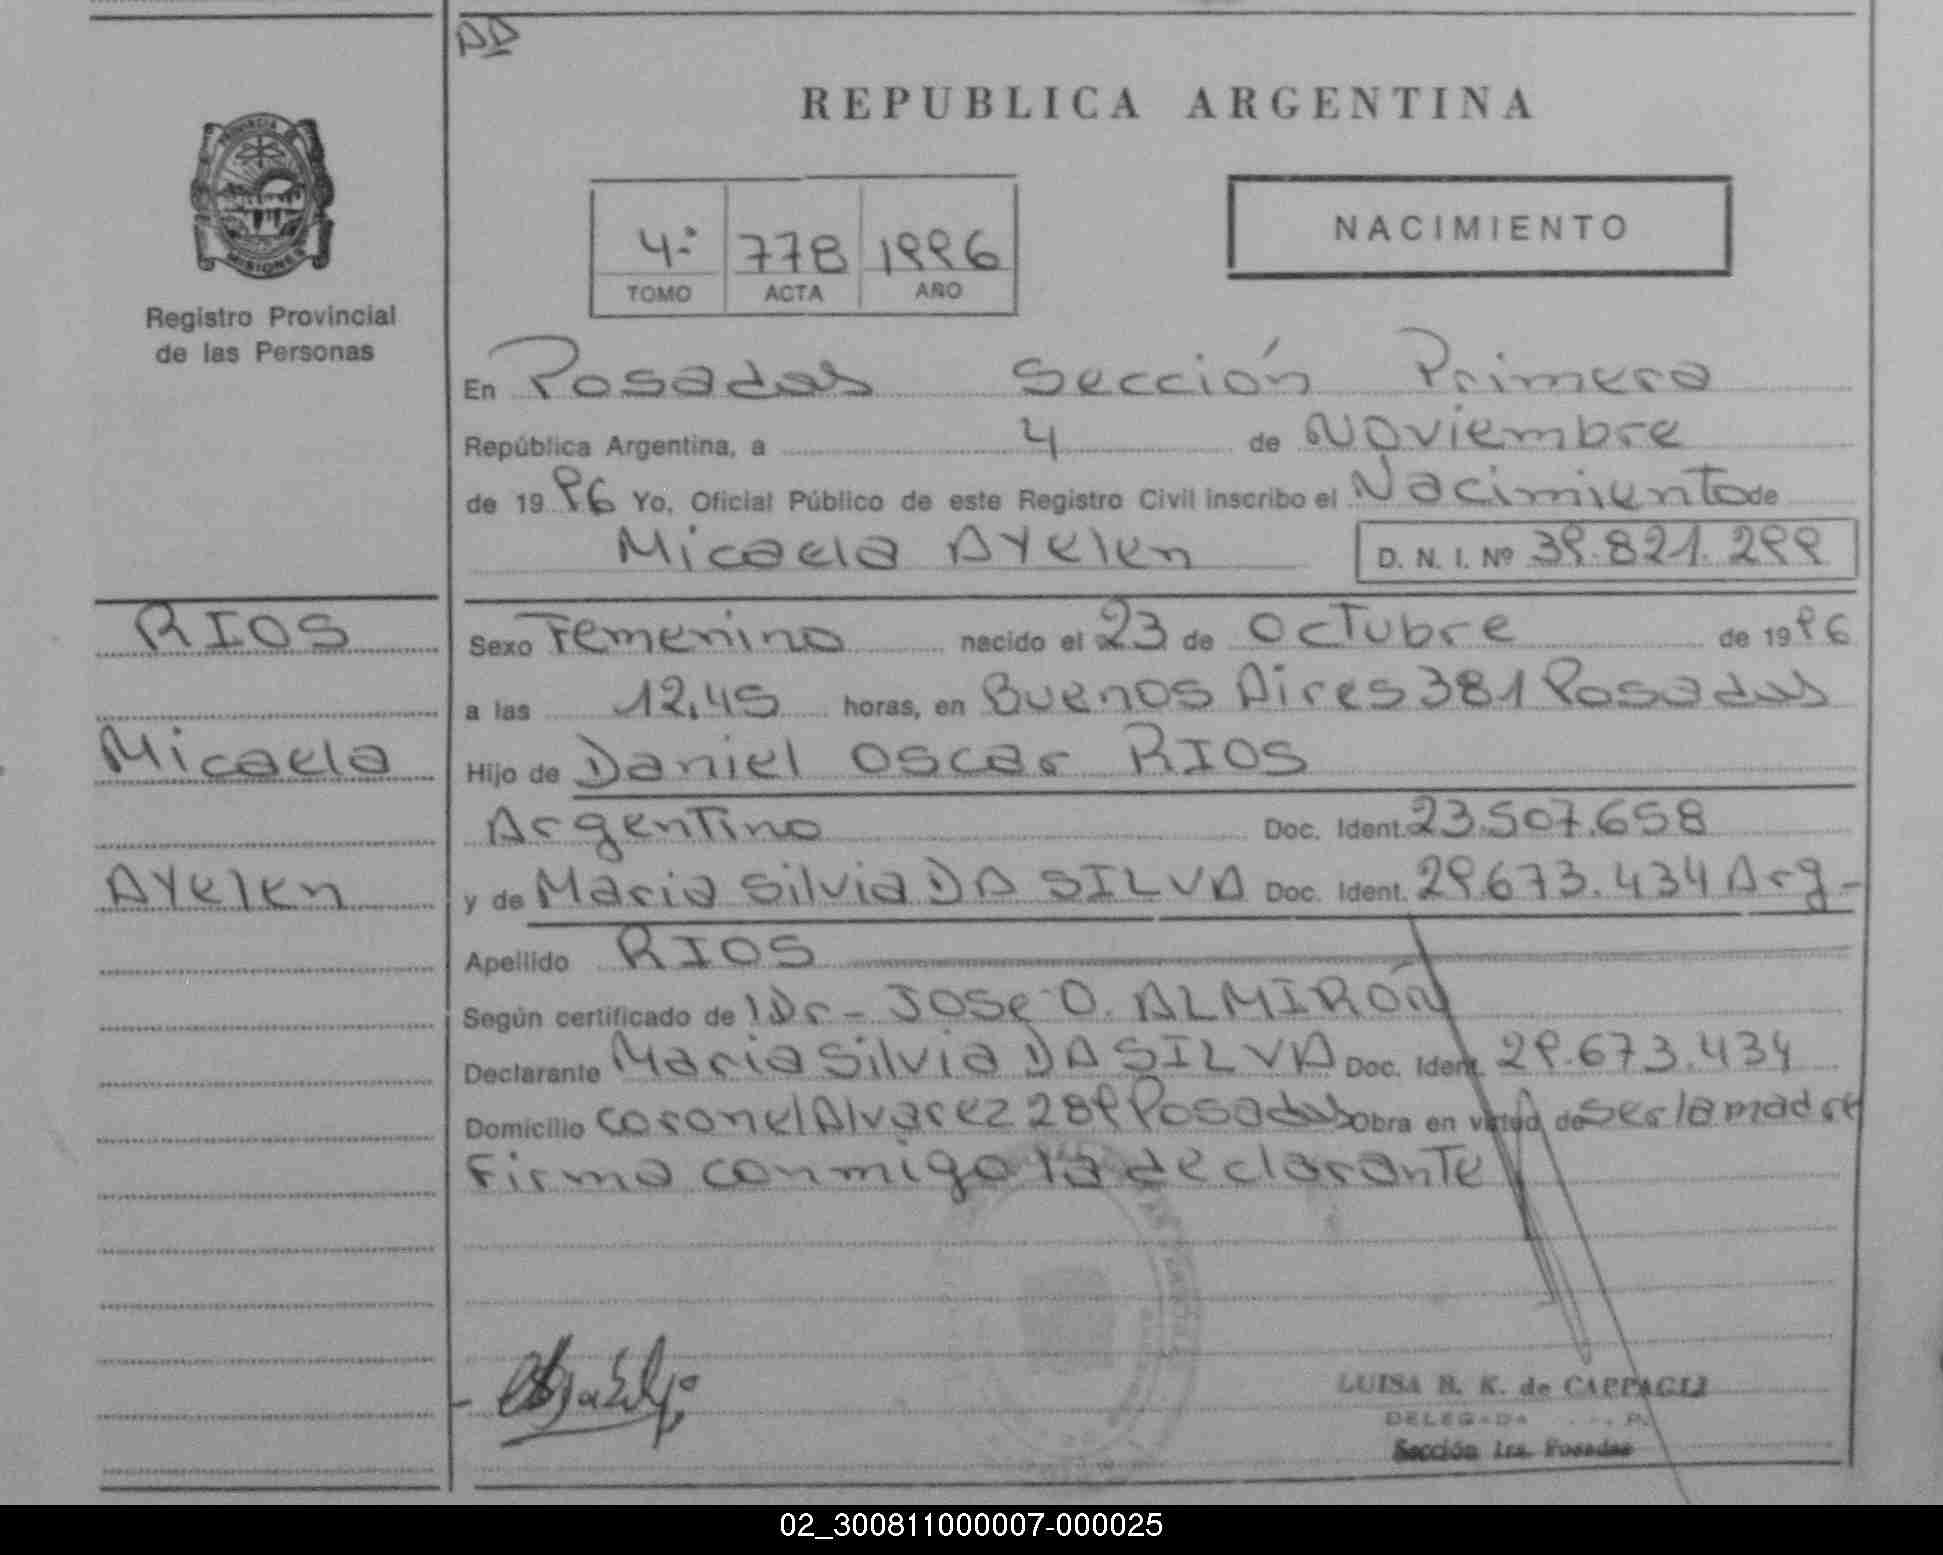 DD
REPUBLICA ARGENTINA
PROVINCIA DE
MISIONES
Registro Provincial
de las Personas
4º 778 1996
TOMO ACTA AÑO
NACIMIENTO
En Posadas Sección Primera
República Argentina, a 4 de Noviembre
de 1996 Yo, Oficial Público de este Registro Civil inscribo el Nacimiento de
Micaela Ayelen D. N. I. Nº 39.821.299
RIOS
Micaela
Ayelen
Sexo Femenino nacido el 23 de Octubre de 1996
a las 12,45 horas, en Buenos Aires 381 Posadas
Hijo de Daniel Oscar RIOS
Argentino Doc. Ident. 23.507.658
y de Maria Silvia DA SILVA Doc. Ident. 29.673.434 Arg-
Apellido RIOS
Según certificado de Dr- Jose O. ALMIRÓN
Declarante Maria Silvia DA SILVA Doc. Ident. 29.673.434
Domicilio Coronel Alvarez 289 Posadas Obra en virtud de ser la madre
Firma conmigo la declarante
LUISA B. K. de CAPPAGLI
DELEGADA
Sección 1ra. Posadas
02_300811000007-000025